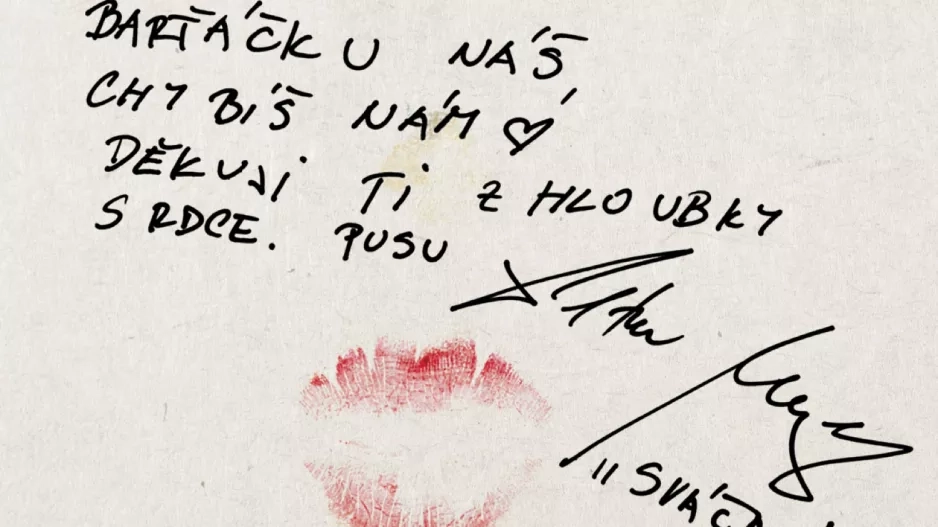 BARŤÁČKU NÁŠ
CHYBÍŠ NÁM ♡
DĚKUJI TI Z HLOUBKY
SRDCE. PUSU